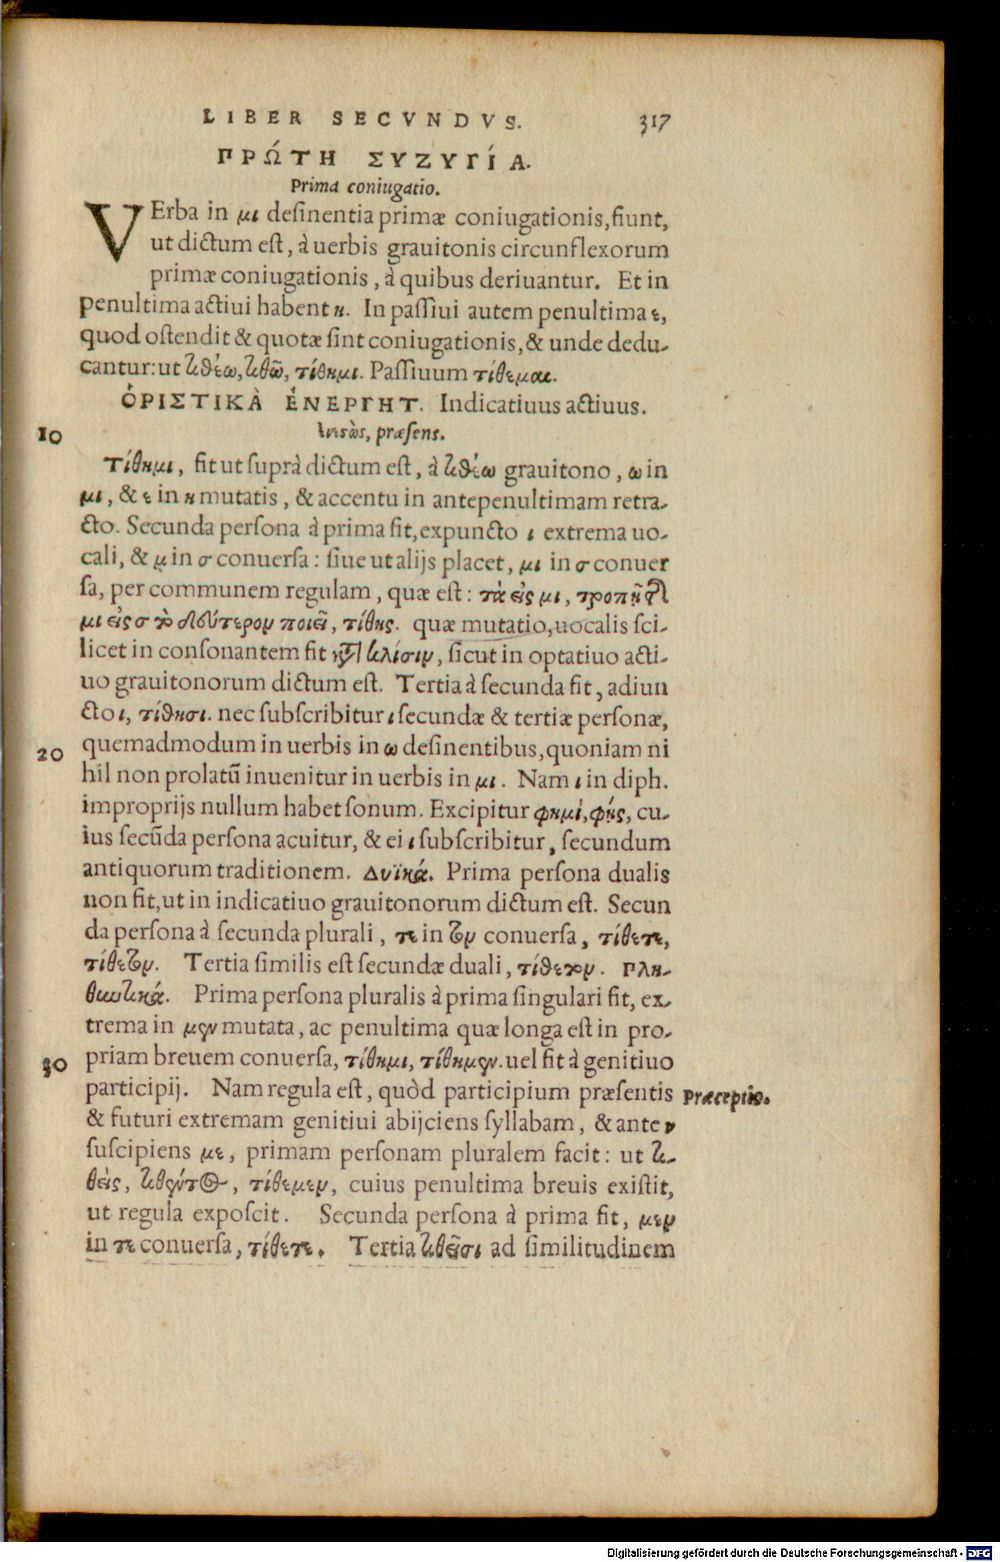 LIBER SECVNDVS. 317
ΠΡΏΤΗ ΣΥΖΥΓΊΑ.
Prima coniugatio.
VErba in μι desinentia primæ coniugationis, fiunt,
ut dictum est, à uerbis grauitonis circunflexorum
primæ coniugationis, à quibus deriuantur. Et in
penultima actiui habent η. In passiui autem penultima ε,
quod ostendit & quotæ sint coniugationis, & unde dedu-
cantur: ut τιθέω, τιθῶ, τίθημι. Passiuum τίθεμαι.
ὉΡΙΣΤΙΚᾺ ἘΝΕΡΓΗΤ. Indicatiuus actiuus.
10 præsens.
Τίθημι, fit ut suprà dictum est, à τιθέω grauitono, ω in
μι, & ε in η mutatis, & accentu in antepenultimam retra-
cto. Secunda persona à prima fit, expuncto ι extrema uo-
cali, & μ in σ conuersa: siue ut alijs placet, μι in σ conuer
sa, per communem regulam, quæ est: τὰ εἰς μι, τροπῇ τῆς
μι εἰς σ τὸ δεύτερον ποιεῖ, τίθης. quæ mutatio, uocalis sci-
licet in consonantem fit κατὰ κλίσιν, sicut in optatiuo acti-
uo grauitonorum dictum est. Tertia à secunda fit, adiun
cto ι, τίθησι. nec subscribitur ι secundæ & tertiæ personæ,
20 quemadmodum in uerbis in ω desinentibus, quoniam ni
hil non prolatū inuenitur in uerbis in μι. Nam ι in diph.
improprijs nullum habet sonum. Excipitur φημὶ, φής, cu-
ius secūda persona acuitur, & ei ι subscribitur, secundum
antiquorum traditionem. Δυϊκά. Prima persona dualis
non fit, ut in indicatiuo grauitonorum dictum est. Secun
da persona à secunda plurali, τε in τον conuersa, τίθετε,
τίθετον. Tertia similis est secundæ duali, τίθετον. Πλη-
θωτικά. Prima persona pluralis à prima singulari fit, ex-
trema in μεν mutata, ac penultima quæ longa est in pro-
30 priam breuem conuersa, τίθημι, τίθημεν. uel fit à genitiuo
participij. Nam regula est, quòd participium præsentis Præceptio.
& futuri extremam genitiui abijciens syllabam, & ante ν
suscipiens με, primam personam pluralem facit: ut τι-
θεὶς, τιθέντος, τίθεμεν, cuius penultima breuis existit,
ut regula exposcit. Secunda persona à prima fit, μεν
in τε conuersa, τίθετε. Tertia τιθεῖσι ad similitudinem
Digitalisierung gefördert durch die Deutsche Forschungsgemeinschaft - DFG